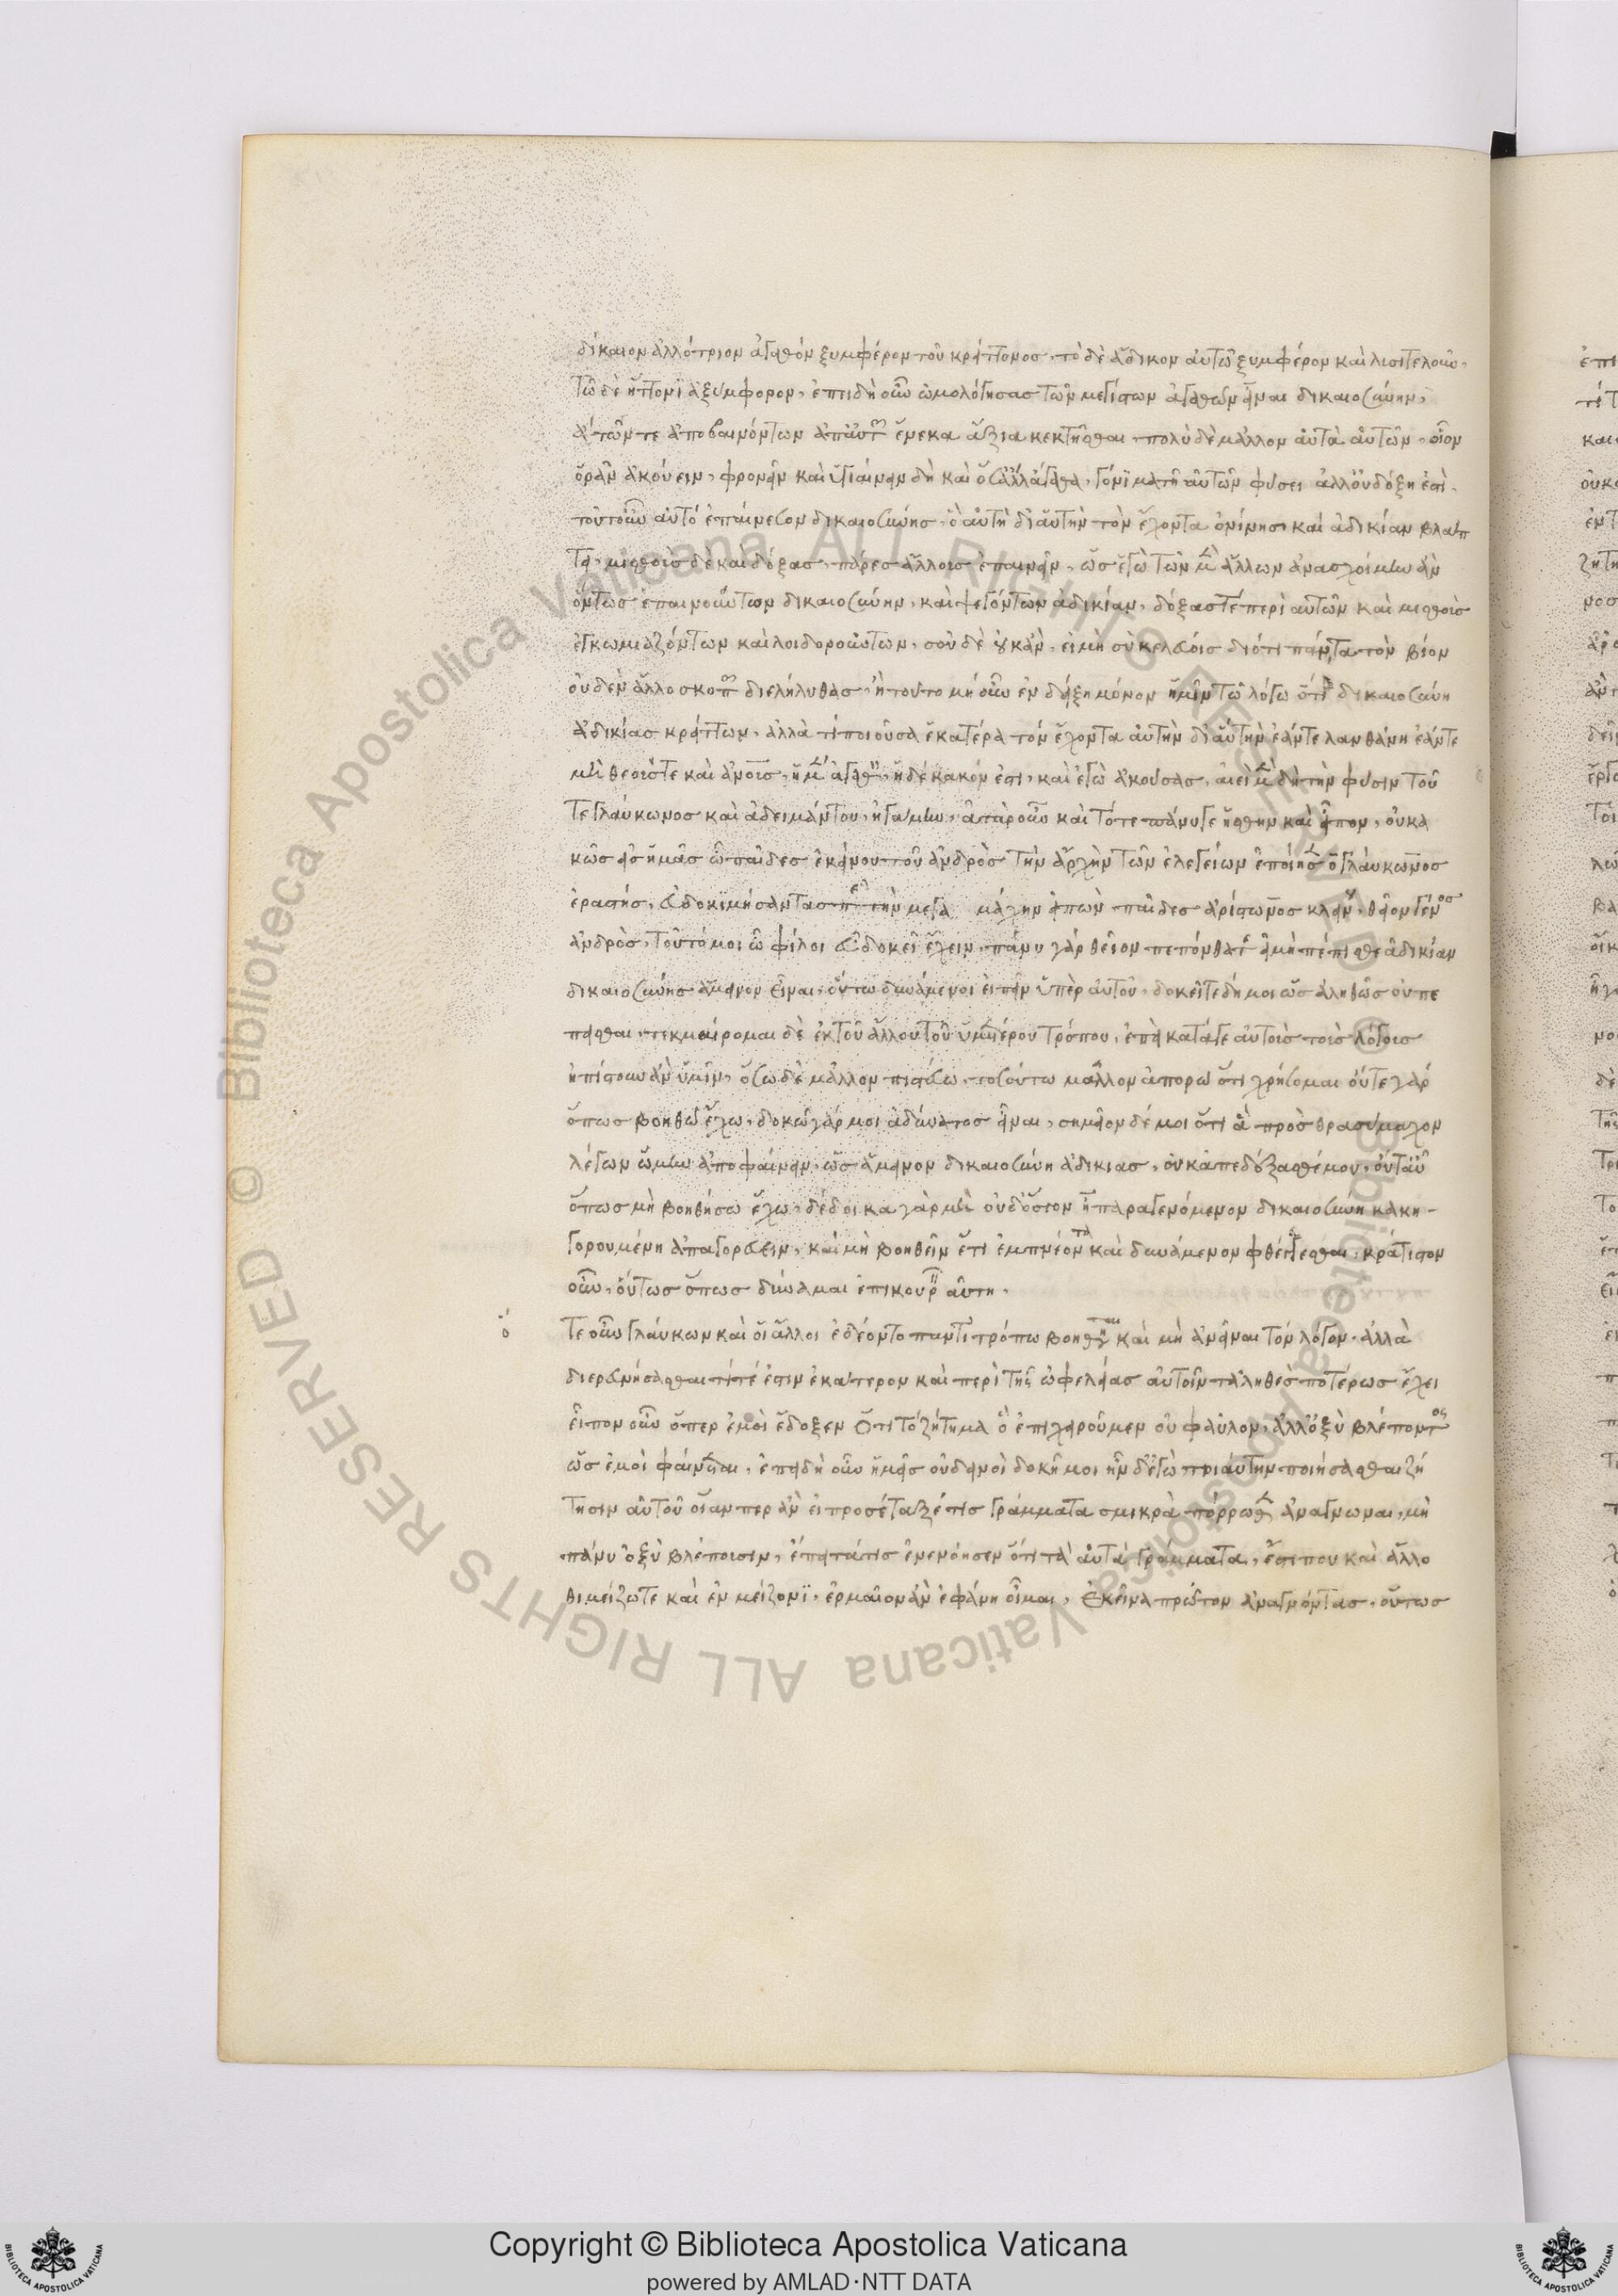 δίκαιον ἀλλότριον ἀγαθόν ξυμφέρον τοῦ κρείττονος, τὸ δὲ ἄδικον αὑτῶ ξυμφέρον καὶ λυσιτελοῦν,
τῶ δὲ ἥττονϊ ἀξύμφορον, ἐπειδὴ οὖν ὡμολόγησας τῶν μεγίστων ἀγαθῶν εἶναι δικαιοσύνην,
ἅ τῶν τε ἀποβαινόντων ἀπ αὐτ ἕνεκα ἄξια κεκτῆσθαι, πολὺ δὲ μᾶλλον αὐτὰ αὑτῶν, οἷον
ὁρᾶν ἀκούειν, φρονεῖν καὶ ὑγιαίνειν δὴ καὶ ὅσ ἄλλ ἀγαθα, γόνϊμα τῆ αὑτῶν φύσει ἀλλ οὐ δόξη ἐστί,
τοῦτ οὖν αὐτό ἐπαίνεσον δικαιοσύνης, ὃ αὐτὴ δι αὑτὴν τὸν ἔχοντα ὀνίνησι καί ἀδικίαν βλάπ
τει, μισθοὺς δὲ καὶ δόξας, πάρες ἄλλοις ἐπαινεῖν, ὡς ἐγὼ τῶν μὲ ἄλλων ἀνασχοίμην ἂν
οὕτως ἐπαινούντων δικαιοσύνην, καὶ ψεγόντων ἀδικίαν, δόξας τέ περὶ αὐτῶν καὶ μισθοὺς
ἐγκωμιαζόντων καὶ λοιδορούντων, σοῦ δὲ οὐκ ἂν, εἰ μὴ σὺ κελεύοις διότι πάντα τὸν βίον
οὐδὲν ἄλλο σκοπ διελήλυθας, ἢ τοῦτο μή οὖν ἐν δείξη μόνον ἡμῖν τῶ λόγω ὅτι δικαιοσύνη
ἀδικίας κρείττων, ἀλλὰ τί ποιοῦσα ἑκατέρα τόν ἔχοντα αὐτὴν δι αὑτὴν ἐάντε λανθάνη ἐάντε
μὴ θεούς τε καὶ ἀνους, ἡ μ ἀγαθ, ἡ δέ κακόν ἐστι, καὶ ἐγὼ ἀκούσας, ἀεὶ μὲ δὴ τὴν φύσιν τοῦ
τε γλαύκωνος καὶ ἀδειμάντου, ἠγάμην, ἀτὰρ οὖν καὶ τότε πάνυ γε ἥσθην καὶ εἶπον, οὐ κα
κῶς εἰς ἡμᾶς ὦ παῖδες ἐκείνου τοῦ ἀνδρὸς τὴν ἀρχὴν τῶν ἐλεγείων ἐποίησ ὁ γλαύκωνος
ἐραστής, εὐδοκιμήσαντας π τὴν μεγα μάχην εἰπὼν παῖδες ἀρίστωνος κλεινοῦ, θεῖον γένος
ἀνδρὸς, τοῦτό μοι ὦ φίλοι εὖ δοκεῖ ἔχειν, πάνυ γάρ θεῖον πεπόνθατ εἰ μὴ πέπεισθε ἀδικίαν
δικαιοσύνης ἄμεινον εἶναι, οὕτω δυνάμενοι εἰπεῖν ὑπὲρ αὐτοῦ, δοκεῖτε δή μοι ὡς ἀληθῶς οὐ πε
πεῖσθαι, τεκμαίρομαι δὲ ἐκ τοῦ ἄλλου τοῦ ὑμετέρου τρόπου, ἐπεὶ κατά γε αὐτοὺς τοὺς λόγους
ἠπίστουν ἂν ὑμῖν, ὅσω δὲ μᾶλλον πιστεύω, τοσούτω μᾶλλον ἀπορῶ ὅτι χρήσομαι οὔτε γάρ
ὅπως βοηθῶ ἔχω, δοκῶ γάρ μοι ἀδύνατος εἶναι, σημεῖον δέ μοι ὅτι ἃ πρὸς θρασύμαχον
λέγων ὤμην ἀποφαίνειν, ὡς ἄμεινον δικαιοσύνη ἀδικίας, οὐκ ἀπεδέξασθέ μου, οὔτ αὖ
ὅπως μὴ βοηθήσω ἔχω, δέδοικα γὰρ μὴ οὐδ ὅσιον ἦ παραγενόμενον δικαιοσύνη κακη-
γορουμένη ἀπαγορεύειν, καὶ μὴ βοηθεῖν ἔτι ἐμπνέοντα καὶ δυνάμενον φθέγγεσθαι, κράτιστον
οὖν, οὕτως ὅπως δύναμαι ἐπικουρ αὐτῆ,
ὅ τε οὖν γλαύκων καὶ οἱ ἄλλοι ἐδέοντο παντὶ τρόπω βοηθῆσαι καὶ μὴ ἀνεῖναι τόν λόγον, ἀλλὰ
διερευνήσασθαι τί τέ ἐστιν ἑκάτερον καὶ περὶ τῆς ὠφελείας αὐτοῖν τἀληθὲς ποτέρως ἔχει
εἶπον οὖν ὅπερ ἐμοὶ ἔδοξεν ὅτι τό ζήτημα ὧ ἐπιχειροῦμεν οὐ φαῦλον, ἀλλ ὀξὺ βλέποντος
ὡς ἐμοὶ φαίνεται, ἐπειδὴ οὖν ἡμεῖς οὐ δεινοὶ δοκεῖ μοι ἦν δ ἐγὼ τοιαύτην ποιήσασθαι ζή
τησιν αὐτοῦ οἵαν περ ἂν εἰ προσέταξέ τις γράμματα σμικρὰ πόρρωθ ἀναγνῶναι, μὴ
πάνυ ὀξὺ βλέπουσιν, ἔπειτά τις ἐνενόησεν ὅτι τὰ αὐτὰ γράμματα, ἔστι που καὶ ἄλλο
θι μείζω τε καὶ ἐν μείζονϊ, ἑρμαῖον ἂν ἐφάνη οἶμαι, ἐκεῖνα πρῶτον ἀναγνόντας, οὕτως
Copyright © Biblioteca Apostolica Vaticana
powered by AMLAD·NTT DATA